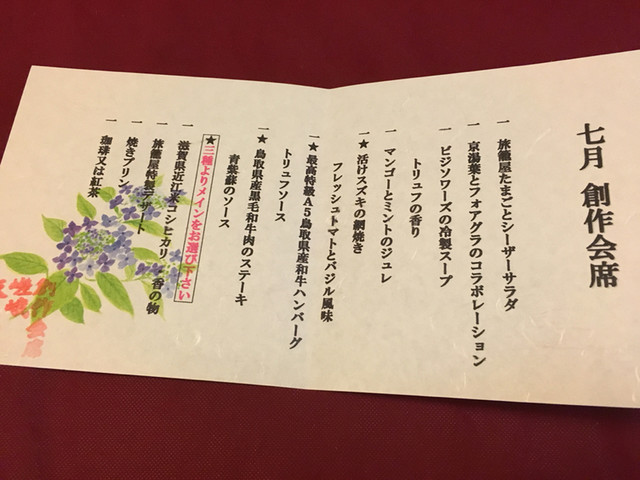 七月 創作会席
一 旅籠屋たまごとシーザーサラダ
一 京湯葉とフォアグラのコラボレーション
一 ビシソワーズの冷製スープ
トリュフの香り
一 マンゴーとミントのジュレ
一★ 活けスズキの網焼き
フレッシュトマトとバジル風味
一★ 最高特級A5鳥取県産和牛ハンバーグ
トリュフソース
一★ 鳥取県産黒毛和牛肉のステーキ
青紫蘇のソース
★三種よりメインをお選び下さい
一 滋賀県近江米コシヒカリ 香の物
一 旅籠屋特製デザート
一 焼きプリン
一 珈琲又は紅茶